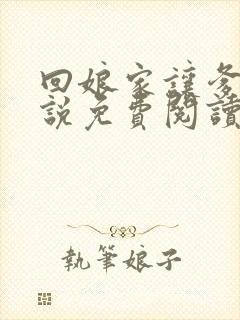 回娘家讓爹
說免費閱讀
執筆娘子